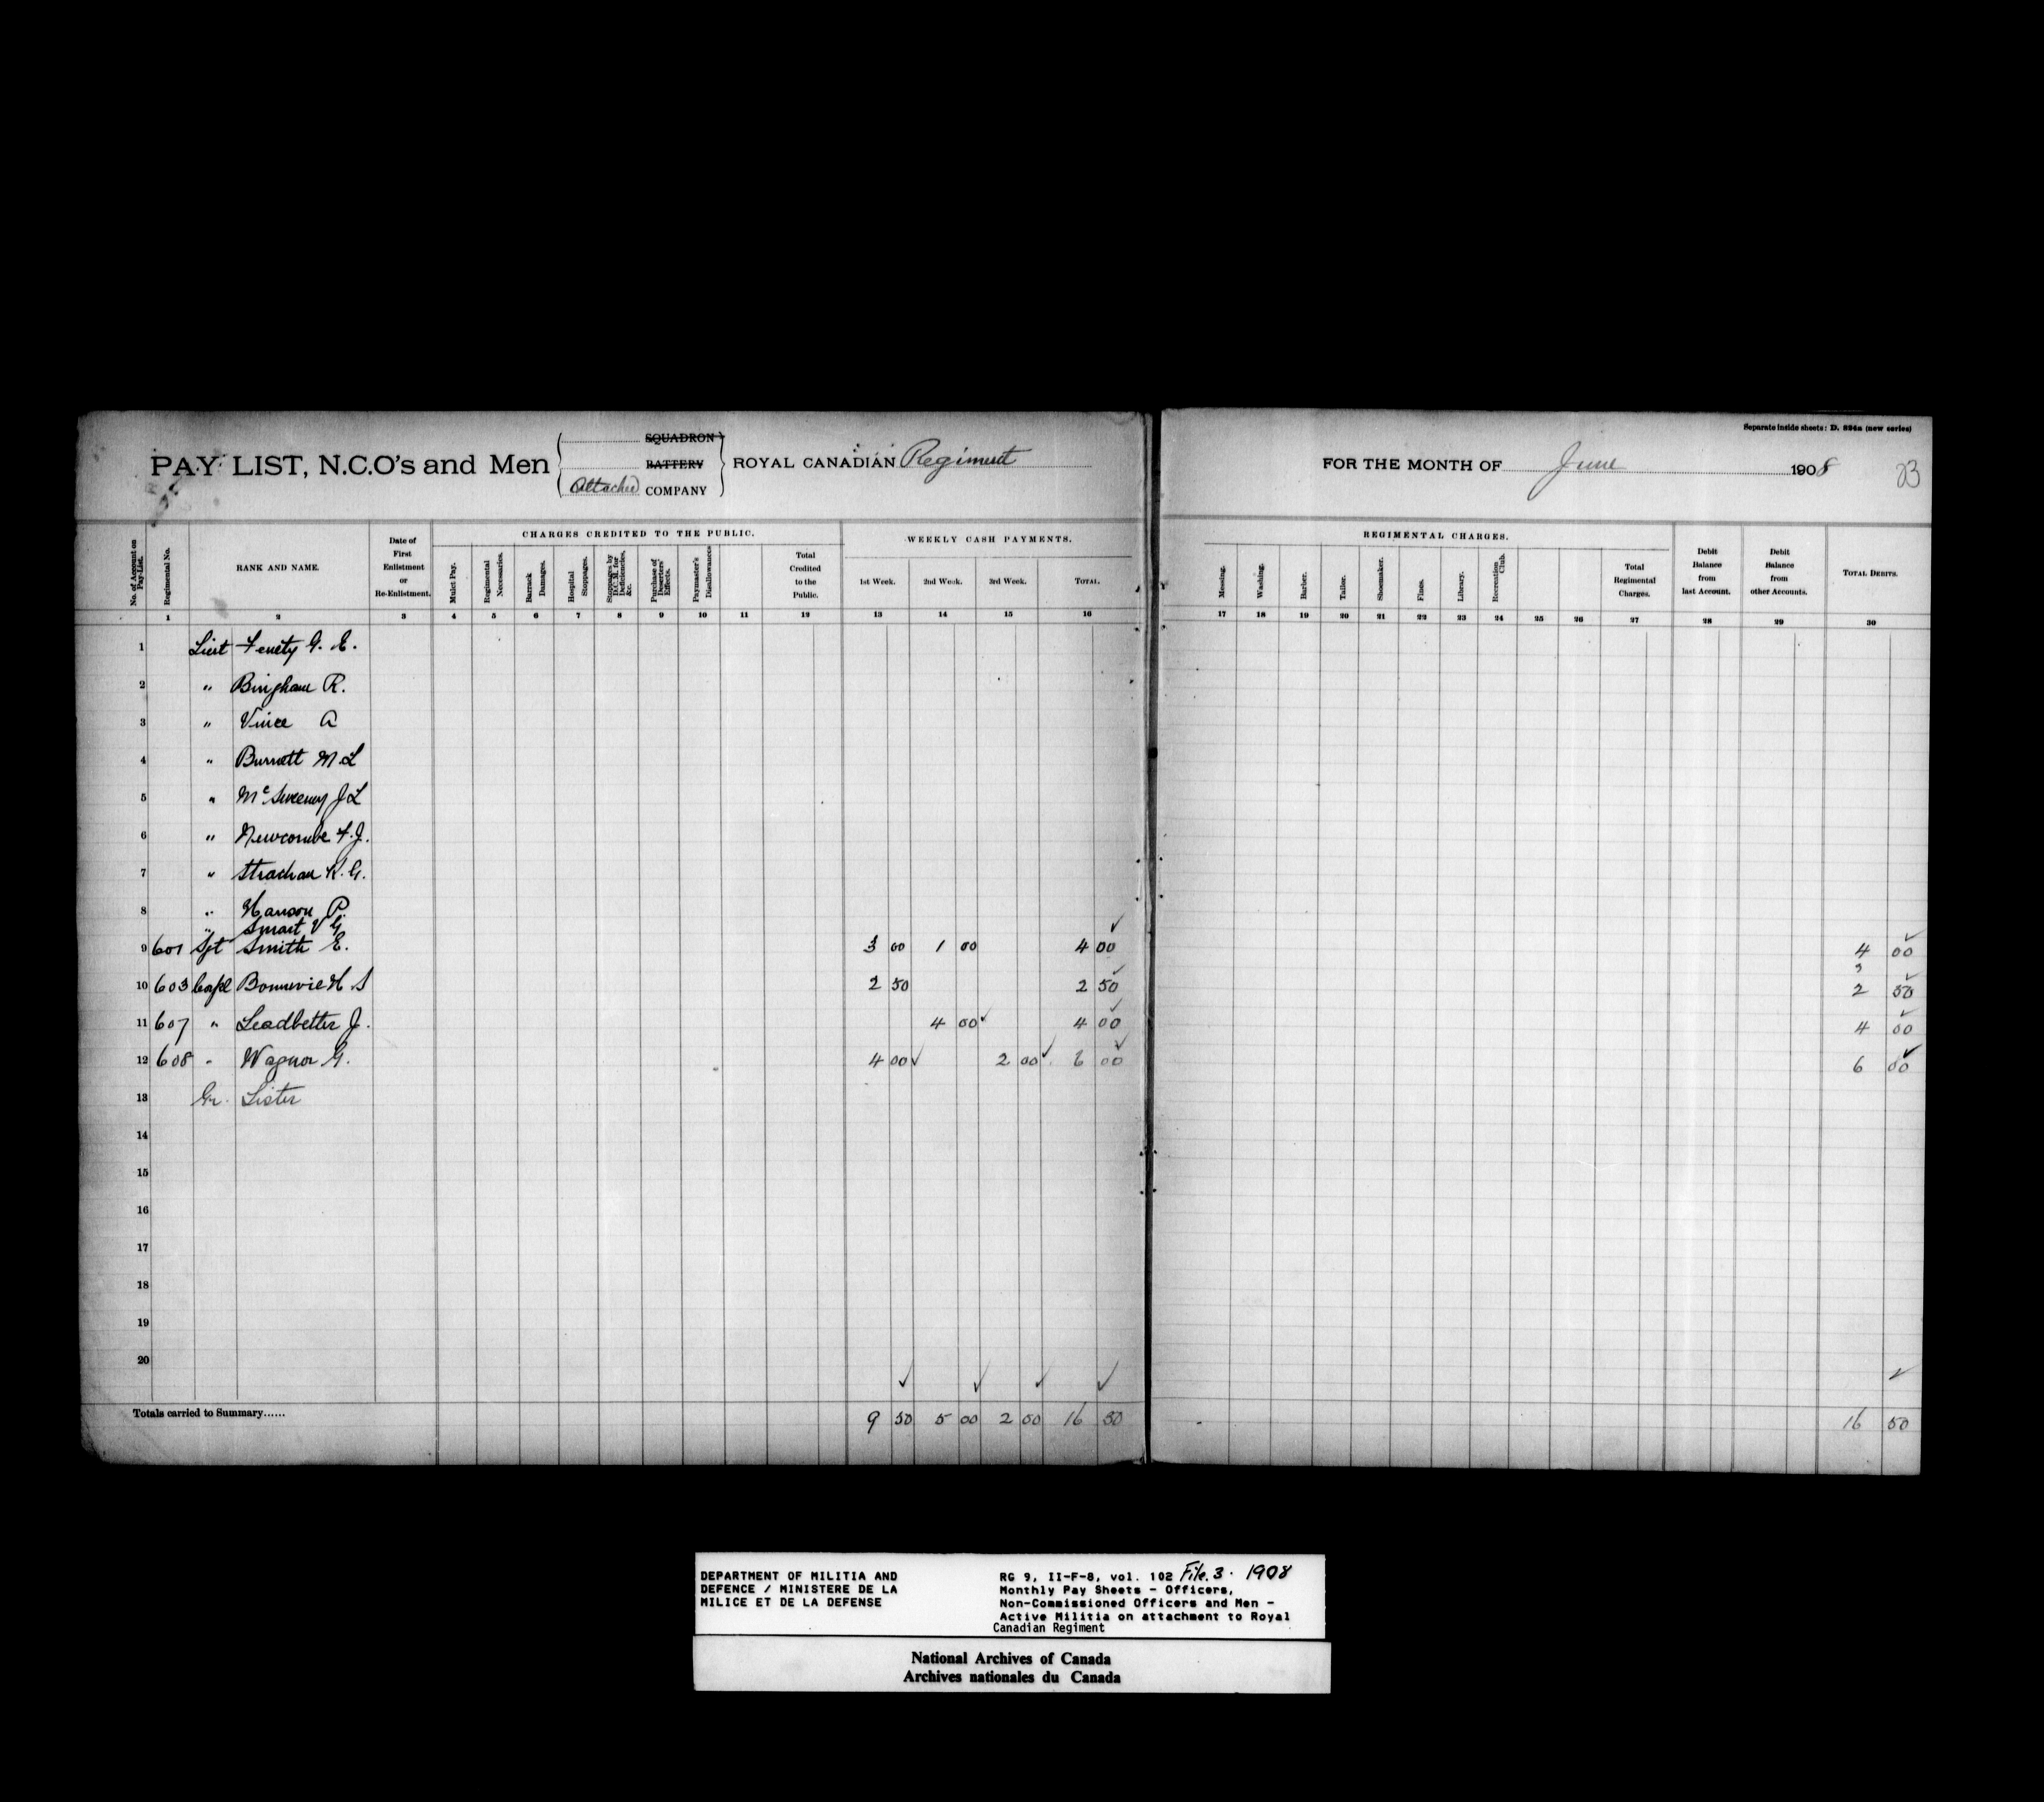 Separate inside sheets: D. 824a (new series)
PAY LIST, N.C.O's and Men
SQUADRON
BATTERY
Attached COMPANY
ROYAL CANADIAN Regiment
FOR THE MONTH OF June 1908
23
No. of Account on Pay-List.
Regimental No.
RANK AND NAME.
Date of First Enlistment or Re-Enlistment.
CHARGES CREDITED TO THE PUBLIC.
Mulct Pay.
Regimental Necessaries.
Barrack Damages.
Hospital Stoppages.
Stoppages by D.C.M. for Deficiencies, &c.
Purchase of Deserters' Effects.
Paymaster's Disallowances
Total Credited to the Public.
WEEKLY CASH PAYMENTS.
1st Week.
2nd Week.
3rd Week.
TOTAL.
REGIMENTAL CHARGES.
Messing.
Washing.
Barber.
Tailor.
Shoemaker.
Fines.
Library.
Recreation Club.
Total Regimental Charges.
Debit Balance from last Account.
Debit Balance from other Accounts.
TOTAL DEBITS.
1 2 3 4 5 6 7 8 9 10 11 12 13 14 15 16 17 18 19 20 21 22 23 24 25 26 27 28 29 30
1 Lieut Fenety G. E.
2 " Bingham R.
3 " Vince A
4 " Burnett M.L
5 " McSweeney J L
6 " Newcombe F.J.
7 " Strachan K.G.
8 " Hanson P.
" Smart V G
9 601 Sgt Smith E. 3 00 1 00 4 00 4 00
10 603 Corpl Bonnevie H S 2 50 2 50 2 50
11 607 " Leadbetter J. 4 00 4 00 4 00
12 608 " Wagnor G. 4 00 2 00 6 00 6 00
13 Gr. Lister
14
15
16
17
18
19
20
Totals carried to Summary...... 9 50 5 00 2 00 16 50 16 50
DEPARTMENT OF MILITIA AND
DEFENCE / MINISTERE DE LA
MILICE ET DE LA DEFENSE
RG 9, II-F-8, vol. 102 File. 3. 1908
Monthly Pay Sheets - Officers,
Non-Commissioned Officers and Men -
Active Militia on attachment to Royal
Canadian Regiment
National Archives of Canada
Archives nationales du Canada